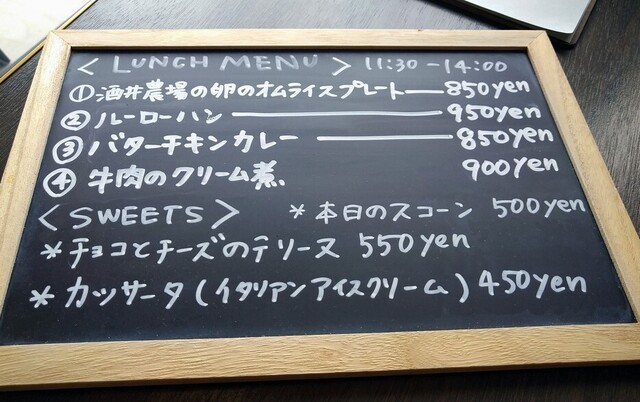 < LUNCH MENU > 11:30 - 14:00
①酒井農場の卵のオムライスプレート — 850yen
② ルーローハン — 950yen
③ バターチキンカレー — 850yen
④ 牛肉のクリーム煮 900yen
< SWEETS > *本日のスコーン 500yen
*チョコとチーズのテリーヌ 550yen
*カッサータ(イタリアンアイスクリーム) 450yen